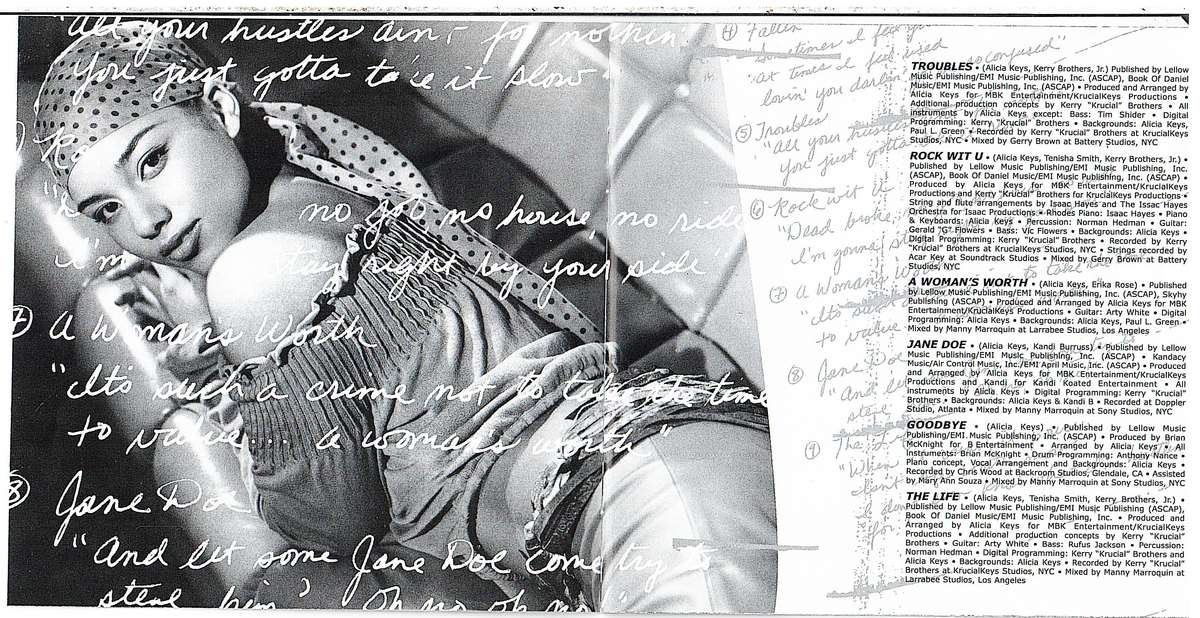 all your hustles ain't for nothin'
you just gotta take it slow"
no job, no house, no ride
i'm
stay right by your side
7 A Womans Worth
"It's such a crime not to take the time
to value... a woman's worth"
8 Jane Doe
"And let some Jane Doe come try to
steal him? Oh no oh no"
4 Fallin
"Sometimes I feel
at times I feel used
lovin' you darlin'
so confused"
5 Troubles
"All your hustles
you just gotta
6 Rock wit U
"Dead broke,
i'm gonna
7 A Womans
"It's such
to value
8 Jane Doe
"And let
steal
9 The
"When
TROUBLES • (Alicia Keys, Kerry Brothers, Jr.) Published by Lellow
Music Publishing/EMI Music Publishing, Inc. (ASCAP), Book Of Daniel
Music/EMI Music Publishing, Inc. (ASCAP) • Produced and Arranged by
Alicia Keys for MBK Entertainment/KrucialKeys Productions •
Additional production concepts by Kerry "Krucial" Brothers • All
instruments by Alicia Keys except: Bass: Tim Shider • Digital
Programming: Kerry "Krucial" Brothers • Backgrounds: Alicia Keys,
Paul L. Green • Recorded by Kerry "Krucial" Brothers at KrucialKeys
Studios, NYC • Mixed by Gerry Brown at Battery Studios, NYC
ROCK WIT U • (Alicia Keys, Tenisha Smith, Kerry Brothers, Jr.) •
Published by Lellow Music Publishing/EMI Music Publishing, Inc.
(ASCAP), Book Of Daniel Music/EMI Music Publishing, Inc. (ASCAP) •
Produced by Alicia Keys for MBK Entertainment/KrucialKeys
Productions and Kerry "Krucial" Brothers for KrucialKeys Productions •
String and flute arrangements by Isaac Hayes and The Issac Hayes
Orchestra for Isaac Productions • Rhodes Piano: Isaac Hayes • Piano
& Keyboards: Alicia Keys • Percussion: Norman Hedman • Guitar:
Gerald "G" Flowers • Bass: Vic Flowers • Backgrounds: Alicia Keys •
Digital Programming: Kerry "Krucial" Brothers • Recorded by Kerry
"Krucial" Brothers at KrucialKeys Studios, NYC • Strings recorded by
Acar Key at Soundtrack Studios • Mixed by Gerry Brown at Battery
Studios, NYC
A WOMAN'S WORTH • (Alicia Keys, Erika Rose) • Published
by Lellow Music Publishing/EMI Music Publishing, Inc. (ASCAP), Skyhy
Publishing (ASCAP) • Produced and Arranged by Alicia Keys for MBK
Entertainment/KrucialKeys Productions • Guitar: Arty White • Digital
Programming: Alicia Keys • Backgrounds: Alicia Keys, Paul L. Green •
Mixed by Manny Marroquin at Larrabee Studios, Los Angeles
JANE DOE • (Alicia Keys, Kandi Burruss) • Published by Lellow
Music Publishing/EMI Music Publishing, Inc. (ASCAP) • Kandacy
Music/Air Control Music, Inc./EMI April Music, Inc. (ASCAP) • Produced
and Arranged by Alicia Keys for MBK Entertainment/KrucialKeys
Productions and Kandi for Kandi Koated Entertainment • All
instruments by Alicia Keys • Digital Programming: Kerry "Krucial"
Brothers • Backgrounds: Alicia Keys & Kandi B • Recorded at Doppler
Studio, Atlanta • Mixed by Manny Marroquin at Sony Studios, NYC
GOODBYE • (Alicia Keys) • Published by Lellow Music
Publishing/EMI Music Publishing, Inc. (ASCAP) • Produced by Brian
McKnight for B Entertainment • Arranged by Alicia Keys • All
Instruments: Brian McKnight • Drum Programming: Anthony Nance •
Piano concept, Vocal Arrangement and Backgrounds: Alicia Keys •
Recorded by Chris Wood at Backroom Studios, Glendale, CA • Assisted
by Mary Ann Souza • Mixed by Manny Marroquin at Sony Studios, NYC
THE LIFE • (Alicia Keys, Tenisha Smith, Kerry Brothers, Jr.) •
Published by Lellow Music Publishing/EMI Music Publishing (ASCAP),
Book Of Daniel Music/EMI Music Publishing, Inc. • Produced and
Arranged by Alicia Keys for MBK Entertainment/KrucialKeys
Productions • Additional production concepts by Kerry "Krucial"
Brothers • Guitar: Arty White • Bass: Rufus Jackson • Percussion:
Norman Hedman • Digital Programming: Kerry "Krucial" Brothers and
Alicia Keys • Backgrounds: Alicia Keys • Recorded by Kerry "Krucial"
Brothers at KrucialKeys Studios, NYC • Mixed by Manny Marroquin at
Larrabee Studios, Los Angeles